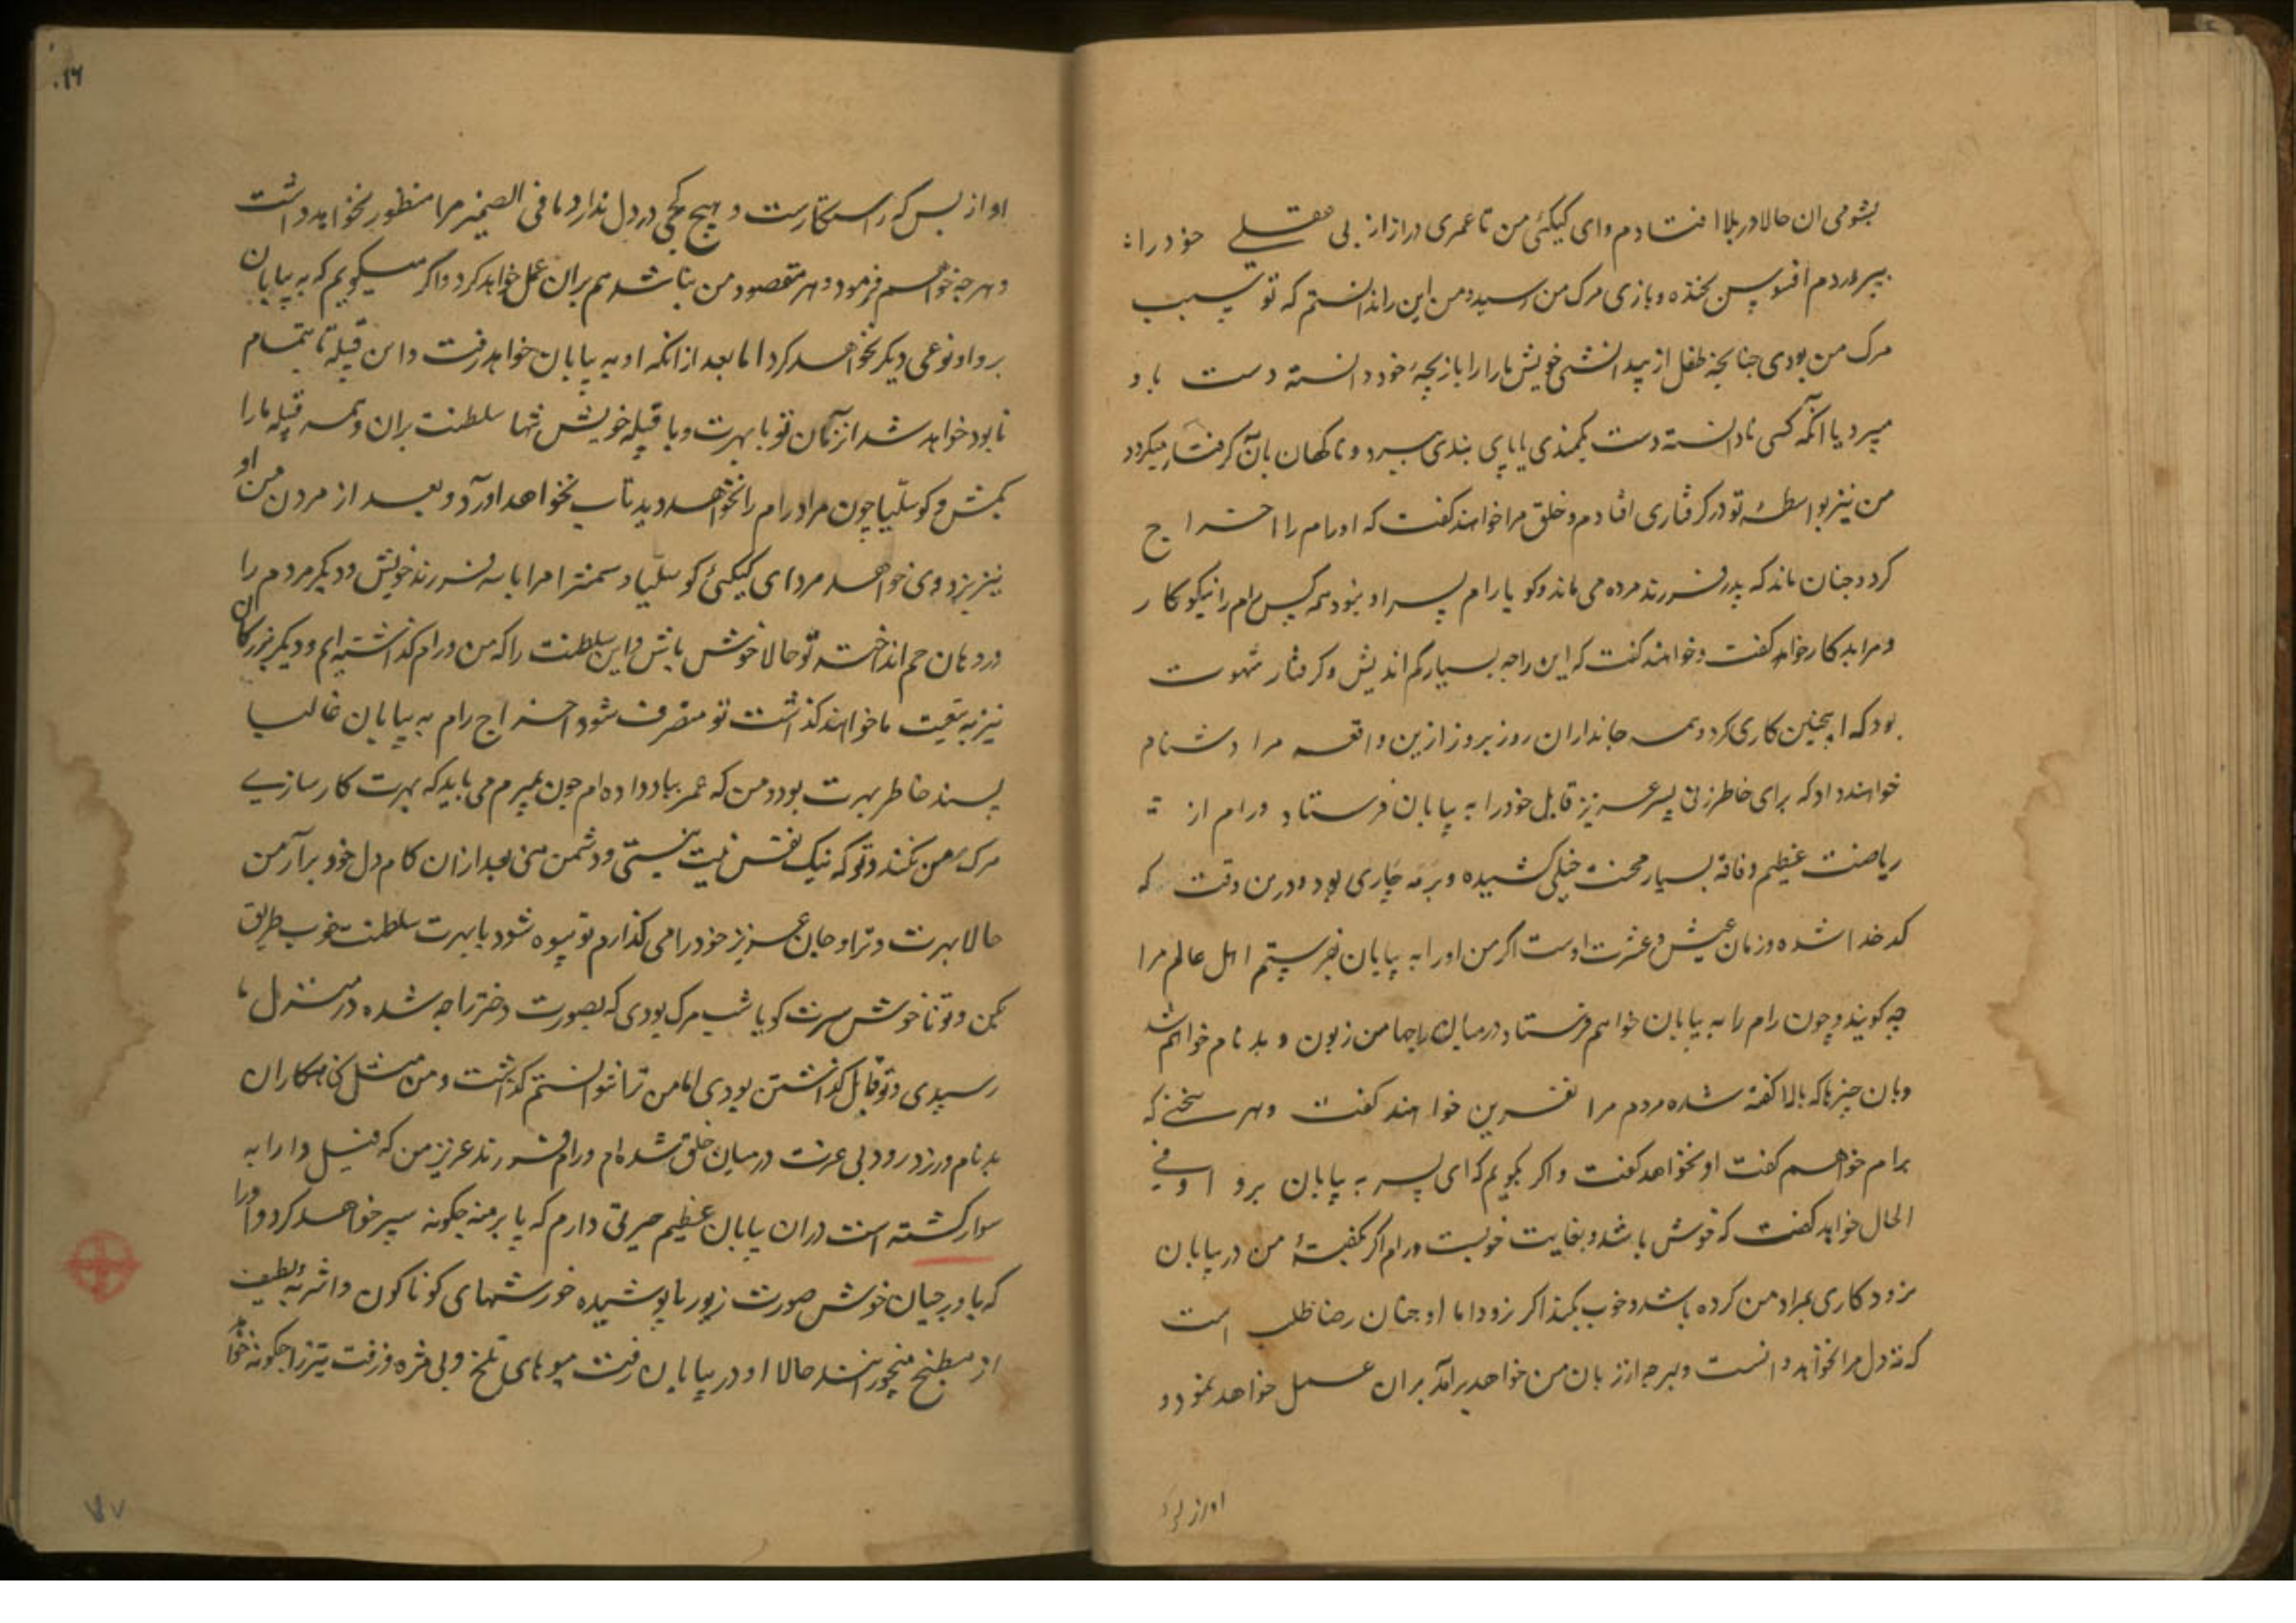 بشومی ان حالا در بلا افتادم وای کیکئی من تا عمری دراز از بی عقلی خود را
بپروردم افسوس بخنده و بازی مرک من رسید و من این را ندانستم که تو سبب
مرک من بودی چنانچه طفل از بیدانشی خویش مار را بازیچهٔ خود دانسته دست باو
میبرد یا آنکه کسی نادانسته دست بکمندی یا پای بندی میبرد و ناکهان بآن کرفتار میکردد
من نیز بواسطهٔ تو در کرفتاری افتادم و خلق مرا خواهند کفت که او رام را اخراج
کرد و چنان ماند که پدر فرزند مرده می ماند و کویا رام پسر او نبود همه کس رام را نیکوکار
و مرا بدکار خواهد کفت و خواهند کفت که این راجه بسیار کم اندیش و کرفتار شهوت
بود که اینچنین کاری کرد و همه جانداران روز بروز ازین واقعه مرا دشنام
خواهند داد که برای خاطر زنی پسر عزیز قابل خود را به بیابان فرستاد و رام از
ریاضت عظیم و فاقه بسیار محنت خیلی کشیده و برمه چاری بود و درین وقت که
کدخدا شده و زمان عیش و عشرت اوست اکر من او را به بیابان بفرستم اهل عالم مرا
چه کویند و چون رام را به بیابان خواهم فرستاد درمیان راجها من زبون و بدنام خواهم شد
و بان چیزها که بالا کفته شده مردم مرا نفرین خواهند کفت و هر سخنی که
برام خواهم کفت او نخواهد کفت و اکر بکویم که ای پسر به بیابان برو او فی
الحال خواهد کفت که خوش باشد و بغایت خوبست و رام اکر بکفتهٔ من در بیابان
نرود کاری بمراد من کرده باشد و خوب بکند اکر نرود اما او چنان رضا طلب است
که ته دل مرا نخواهد دانست و هر چه از زبان من خواهد برآمد بران عمل خواهد نمود و
او از بس که
او از بس که راستکارست و هیچ کجی در دل ندارد ما فی الضمیر مرا منظور نخواهد داشت
و هر چه خواهم فرمود و هر مقصود من نباشد هم بران عمل خواهد کرد و اکر میکویم که به بیابان
برو او نوعی دیکر نخواهد کرد اما بعد از انکه او به بیابان خواهد رفت و این قبیله تا بتمام
نابود خواهد شد از زمان تو با بهرت و با قبیله خویش تنها سلطنت بران و همه قبیله ما را
بکش و کوسلیا چون مرا و رام را نخواهد دید تاب نخواهد آورد و بعد از مردن من او
نیز بزودی خواهد مرد ای کیکئی کوسلیا و سمترا مرا با سه فرزند خویش و دیکر مردم را
در دهان جم انداخته تو حالا خوش باش و این سلطنت را که من و رام کذاشته ایم و دیکر بزرکان
نیز به تبعیت ما خواهند کذاشت تو متصرف شو و اخراج رام به بیابان غالبا
پسند خاطر بهرت بود و من که عمر بباد داده ام چون بمیرم می باید که بهرت کارسازی
مرک من نکند و تو که نیک نفس نیستی و دشمن منی بعد ازان کام دل خود برآر من
حالا بهرت و ترا و جان عزیز خود را می کذارم تو بیوه شو و با بهرت سلطنت بخوب طریق
بکن و تو ناخوش سیرت کویا شب مرک بودی که بصورت دختر راجه شده در منزل ما
رسیدی و تو قابل کذاشتن بودی اما من ترا نتوانستم کذاشت و من مثل کنهکاران
بدنام ورزد رو و بی عزت درمیان خلق شده ام و رام فرزند عزیز من که فیل و ارابه
سوار کشته است دران بیابان عظیم حیرتی دارم که پا برهنه چکونه سیر خواهد کرد و او را
که باورچیان خوش صورت زیورها پوشیده خورشهای کوناکون و اشربهٔ لطیف
از مطبخ میخورانند حالا او در بیابان رفت میوهای تلخ و بی مزه و زفت تیز را چکونه خواهد